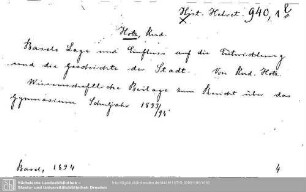 Hist. Helvet. 940, 1
Hotz, Rud.
Basels Lage und Einfluss auf die Entwicklung
und die Geschichte der Stadt. Von Rud. Hotz.
Wissenschaftliche Beilage zum Bericht über das
Gymnasium Schuljahr 1893/94
Basel, 1894 4
Sächsische Landesbibliothek -
Staats- und Universitätsbibliothek Dresden